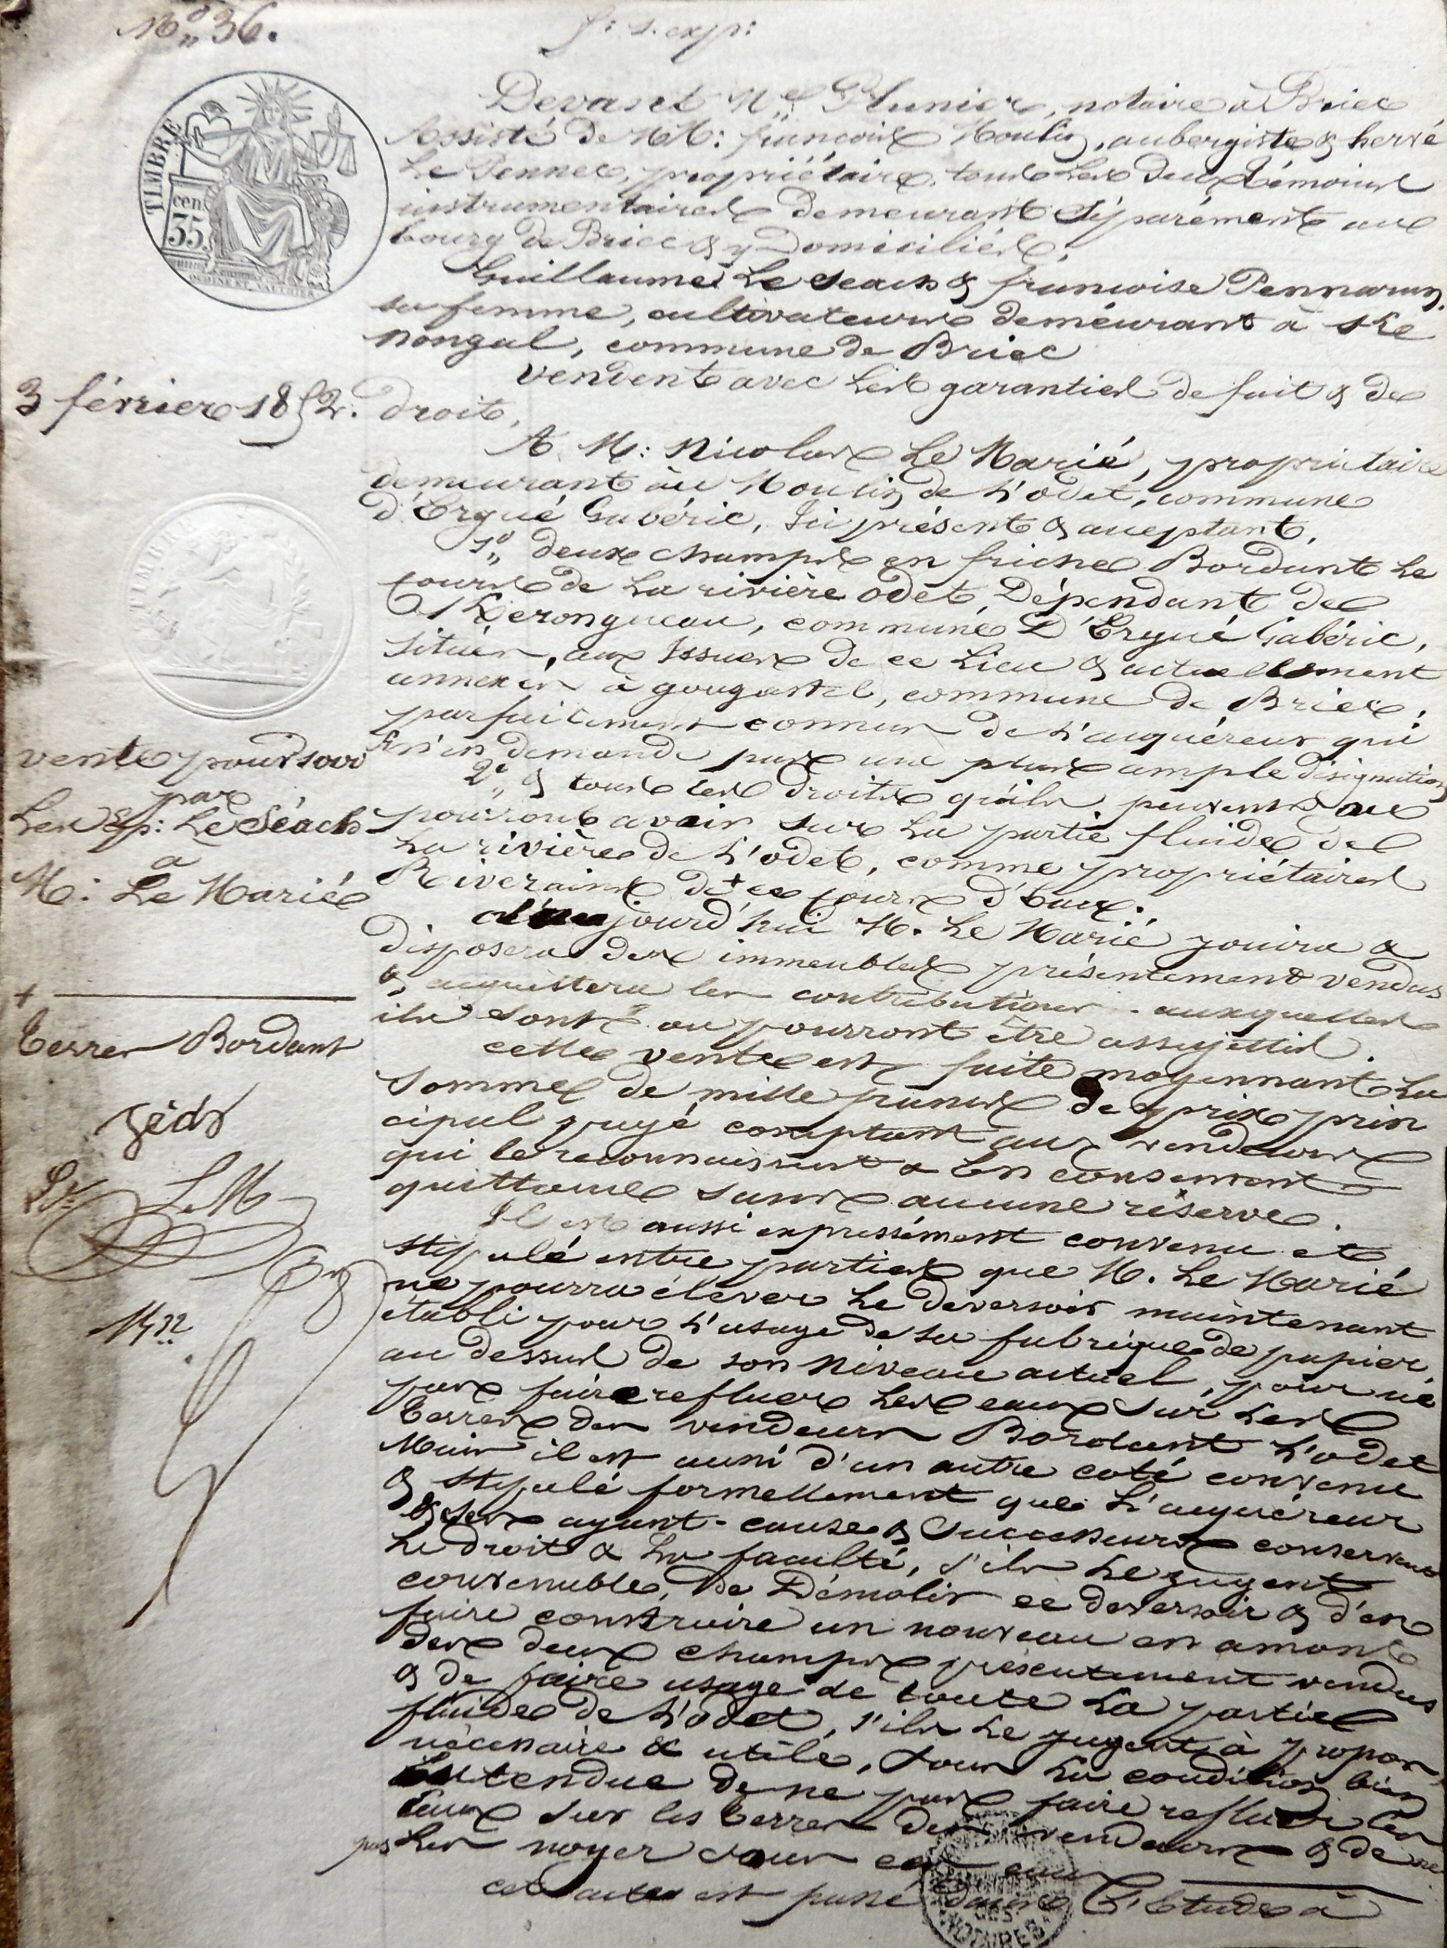 N° 36.
f: s. exp:
Devant Me Plunier, notaire à Briec
Assisté de MM: françois Moulin, aubergiste & hervé
Le Pennec, propriétaire, tous les deux témoins
instrumentaires demeurant séparément au
bourg de Briec & y Domiciliés,
Guillaume Le Séach & françoise Pennarun,
sa femme, cultivateurs demeurant à
nongal, commune de Briec
vendent avec les garanties de fait & de
droit,
A M: Nicolas Le Marié, propriétaire
demeurant au Moulin de L'odet, commune
d'Ergué Gabéric, Ici présent & acceptant,
1° deux champs en friche Bordant Le
cours de La rivière odet, Dépendant de
Kerongueau, commune D'Ergué Gabéric,
situés, aux Issues de ce Lieu & actuellement
annexés à gougastel, commune de Briec,
parfaitement connus de L'acquéreur qui
n'en demande pas une plus ample désignation
2° & tous les droits qu'ils peuvent ou
pourront avoir sur La partie fluide de
La rivière de L'odet, comme propriétaires
Riverains de + ce cours d'Eau.
jourd'hui M. Le Marié jouira &
disposera des immeubles présentement vendus
& acquittera les contributions auxquelles
ils sont ou pourront être assujettis.
cette vente est faite moyennant La
somme de mille francs de prix prin
cipal payé comptant aux vendeurs
qui le reconnaissent & en consentent
quittance sans aucune réserve.
Il est aussi expressément convenu et
stipulé entre parties que M. Le Marié
ne pourra élever Le deversoir maintenant
établi pour L'usage de sa fabrique de papier,
au dessus de son niveau actuel, pour ne
pas faire refluer Les eaux sur Les
Terres des vendeurs Bordant L'odet
Mais il est aussi d'un autre coté convenu
& stipulé formellement que L'acquéreur
& ses ayant-cause & successeurs conservent
Le droit & La faculté, s'ils Le jugent
convenable, de Démolir ce deversoir & d'en
faire construire un nouveau en amont
des deux champs présentement vendus
& de faire usage de toute La partie
fluide de L'odet, s'ils Le jugent à propos,
nécessaire & utile, sous La condition bien
Entendue de ne pas faire refluer Les
Eaux sur les terres des vendeurs & de ne
pas Les noyer sous ces eaux
cet acte est passé dans L'Etude à
TIMBRE
35 cen
3 février 1852.
vente pour 1000
par
Les Ep: Le Séach
à
M: Le Marié
+
Terres Bordant
LeM
DES NOTAIRES